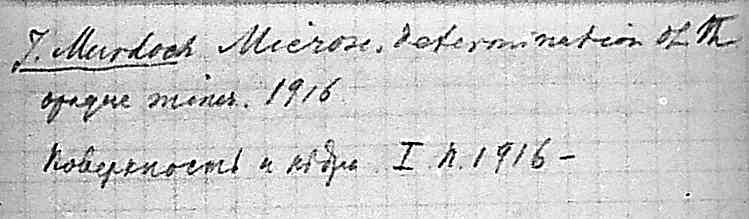 J. Murdoch Microsc. determination of th
opaque miner. 1916
Поверхность и нѣдра. I. П. 1916 –